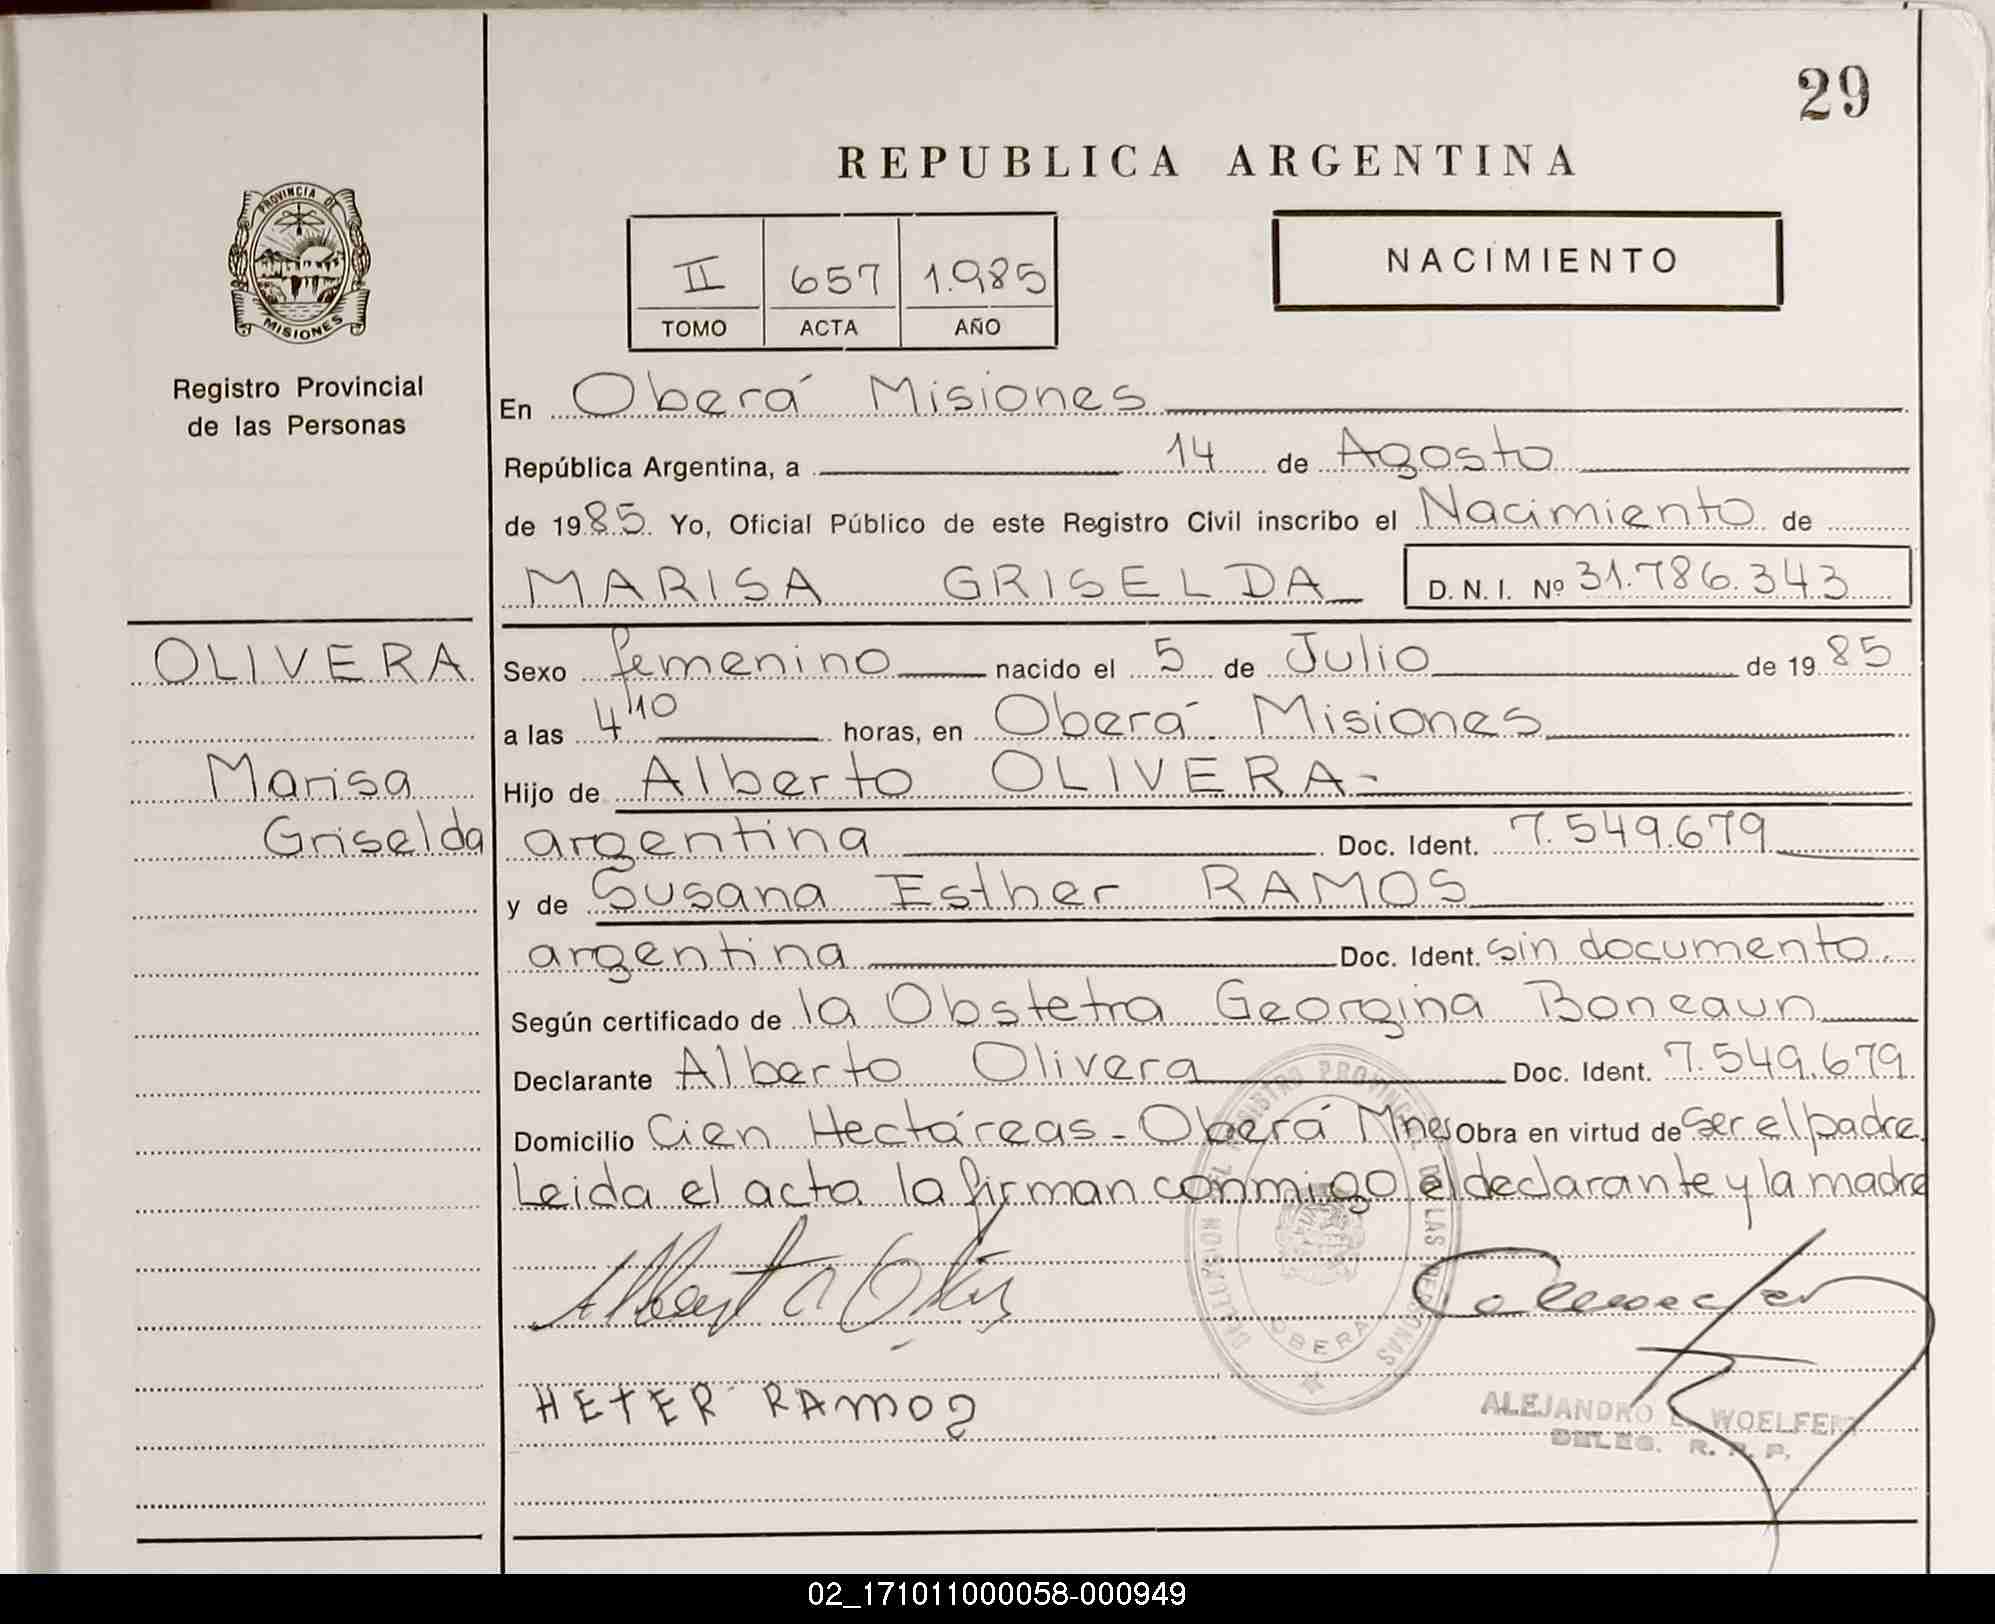 29
REPUBLICA ARGENTINA
PROVINCIA DE
MISIONES
Registro Provincial
de las Personas
II 657 1.985
TOMO ACTA AÑO
NACIMIENTO
En Oberá Misiones
República Argentina, a 14 de Agosto
de 1985. Yo, Oficial Público de este Registro Civil inscribo el Nacimiento de
MARISA GRISELDA D.N.I. Nº 31.786.343
OLIVERA
Marisa
Griselda
Sexo femenino nacido el 5 de Julio de 1985
a las 4 10 horas, en Oberá Misiones
Hijo de Alberto OLIVERA-
argentina Doc. Ident. 7.549.679
y de Susana Esther RAMOS
argentina Doc. Ident. sin documento.
Según certificado de la Obstetra Georgina Boneaun
Declarante Alberto Olivera Doc. Ident. 7.549.679
Domicilio Cien Hectáreas - Oberá Mnes Obra en virtud de ser el padre.
Leida el acta la firman conmigo el declarante y la madre
DELEGACION DEL REGISTRO PROVINCIAL DE LAS PERSONAS
OBERA
HETER RAMOS
ALEJANDRO E. WOELFERT
DELEG. R. P. P.
02_171011000058-000949